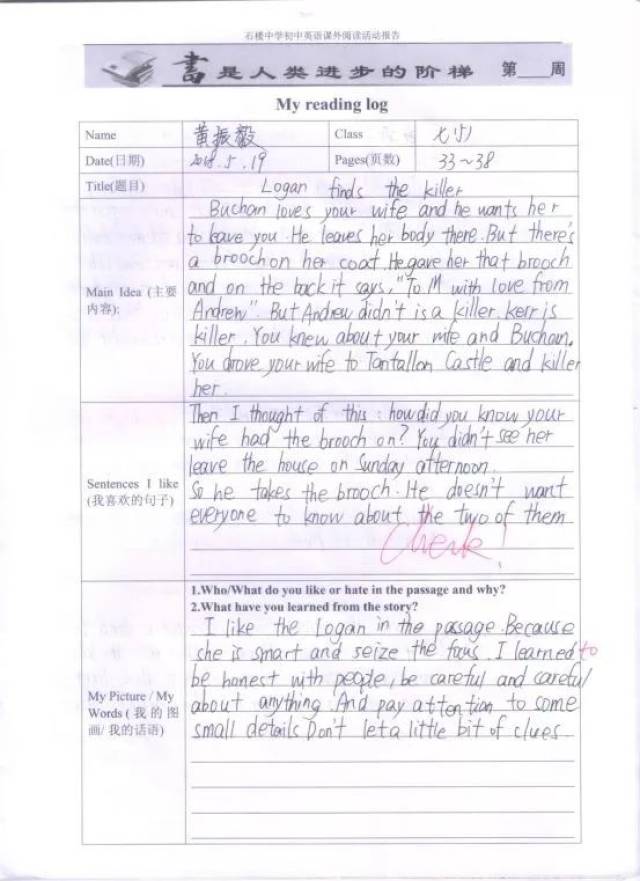 石楼中学初中英语课外阅读活动报告
書是人类进步的阶梯 第___周
My reading log
Name 黄振毅 Class 七(5)
Date(日期) 2018.5.19 Pages(页数) 33~38
Title(题目) Logan finds the killer
Main Idea (主要
内容):
Buchan loves your wife and he wants her
to leave you. He leaves her body there. But there's
a brooch on her coat. He gave her that brooch
and on the back it says, "To M with love from
Andrew". But Andrew didn't is a killer. kerr is
killer. You knew about your wife and Buchan.
You drove your wife to Tantallon Castle and killer
her.
Sentences I like
(我喜欢的句子)
Then I thought of this : how did you know your
wife had the brooch on? You didn't see her
leave the house on Sunday afternoon.
So he takes the brooch. He doesn't want
everyone to know about the two of them
Check!
1.Who/What do you like or hate in the passage and why?
2.What have you learned from the story?
My Picture / My
Words ( 我 的 图
画/ 我的话语)
I like the Logan in the passage. Because
she is smart and seize the . I learned to
be honest with people, be careful and careful
about anything. And pay attention to some
small details Don't let a little bit of clues